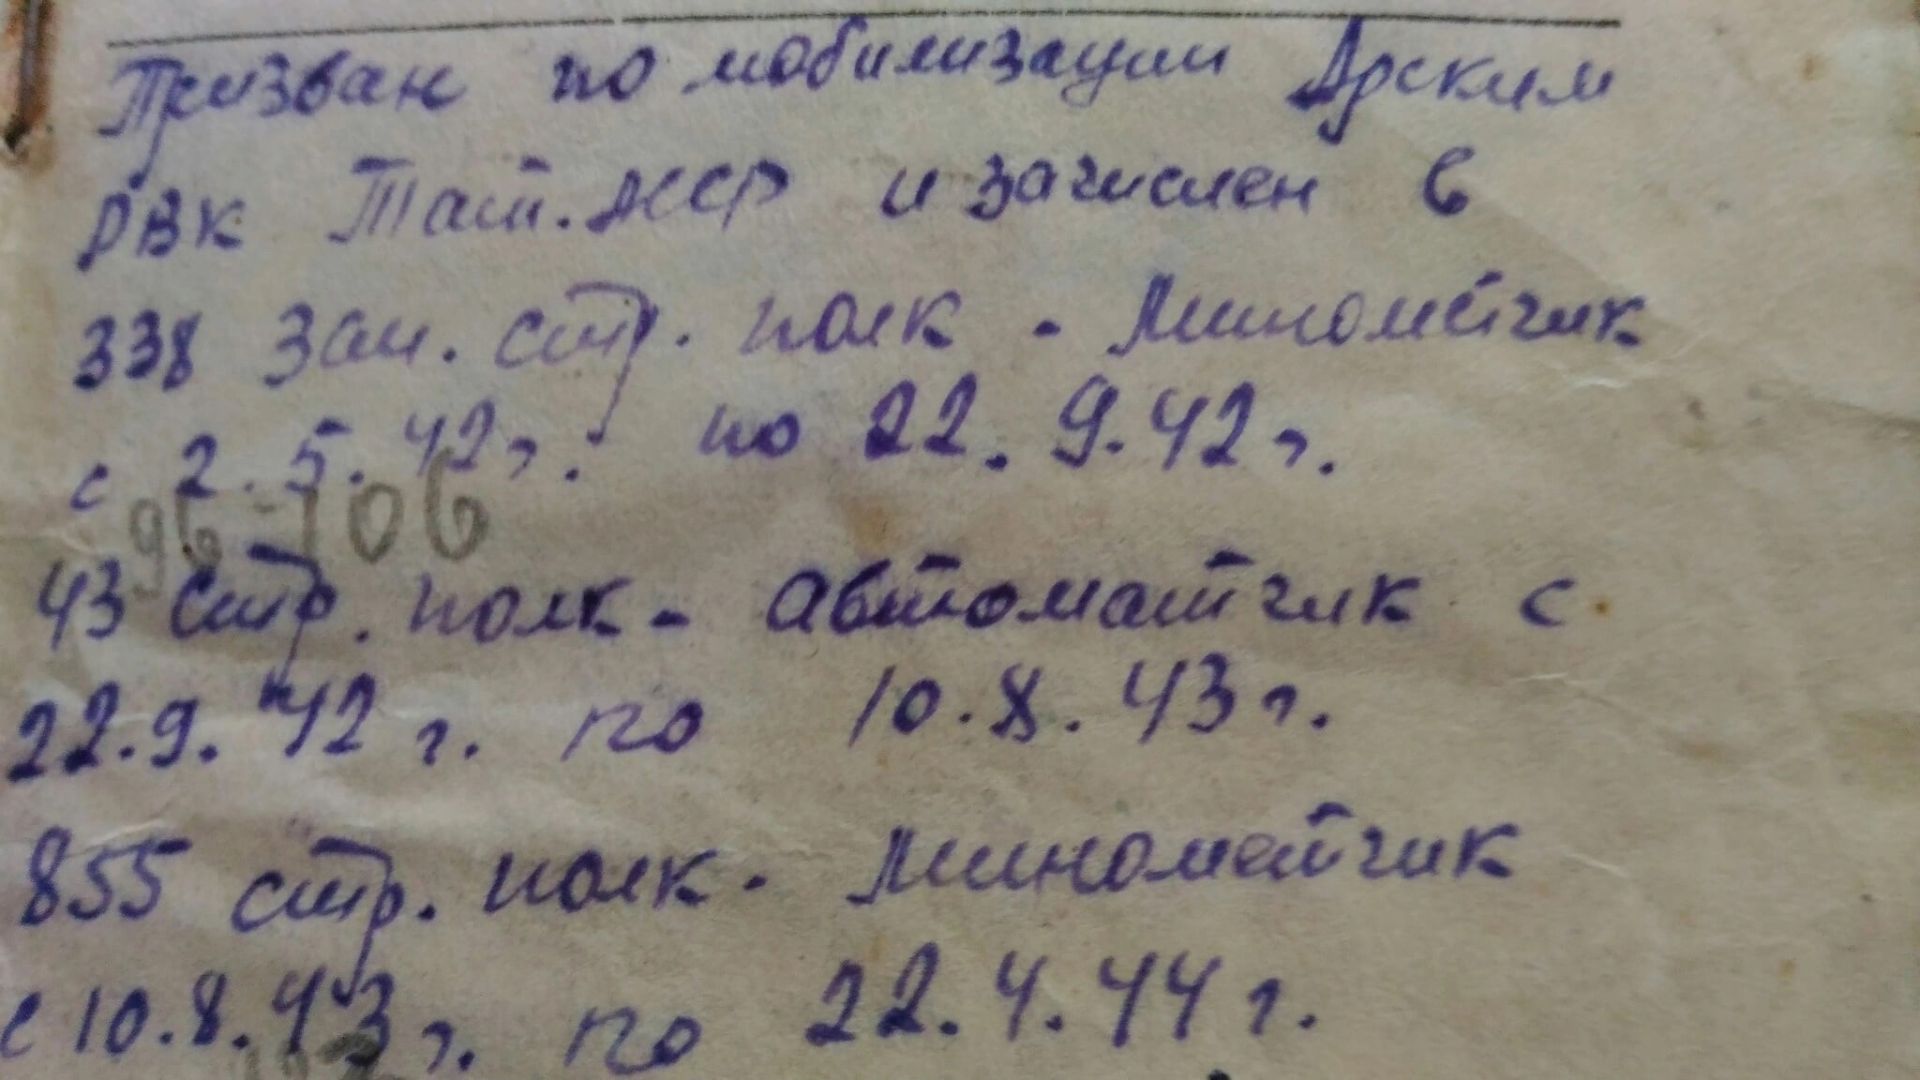 Призван по мобилизации Арским
РВК Тат. АССР и зачислен в
338 зап. стр. полк - Минометчик
с 2.5.42 г. по 22.9.42 г.
96-106
43 стр. полк - автоматчик с
22.9.42 г. по 10.8.43 г.
855 стр. полк - Минометчик
с 10.8.43 г. по 22.4.44 г.